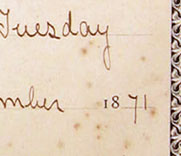 Tuesday
mber 1871